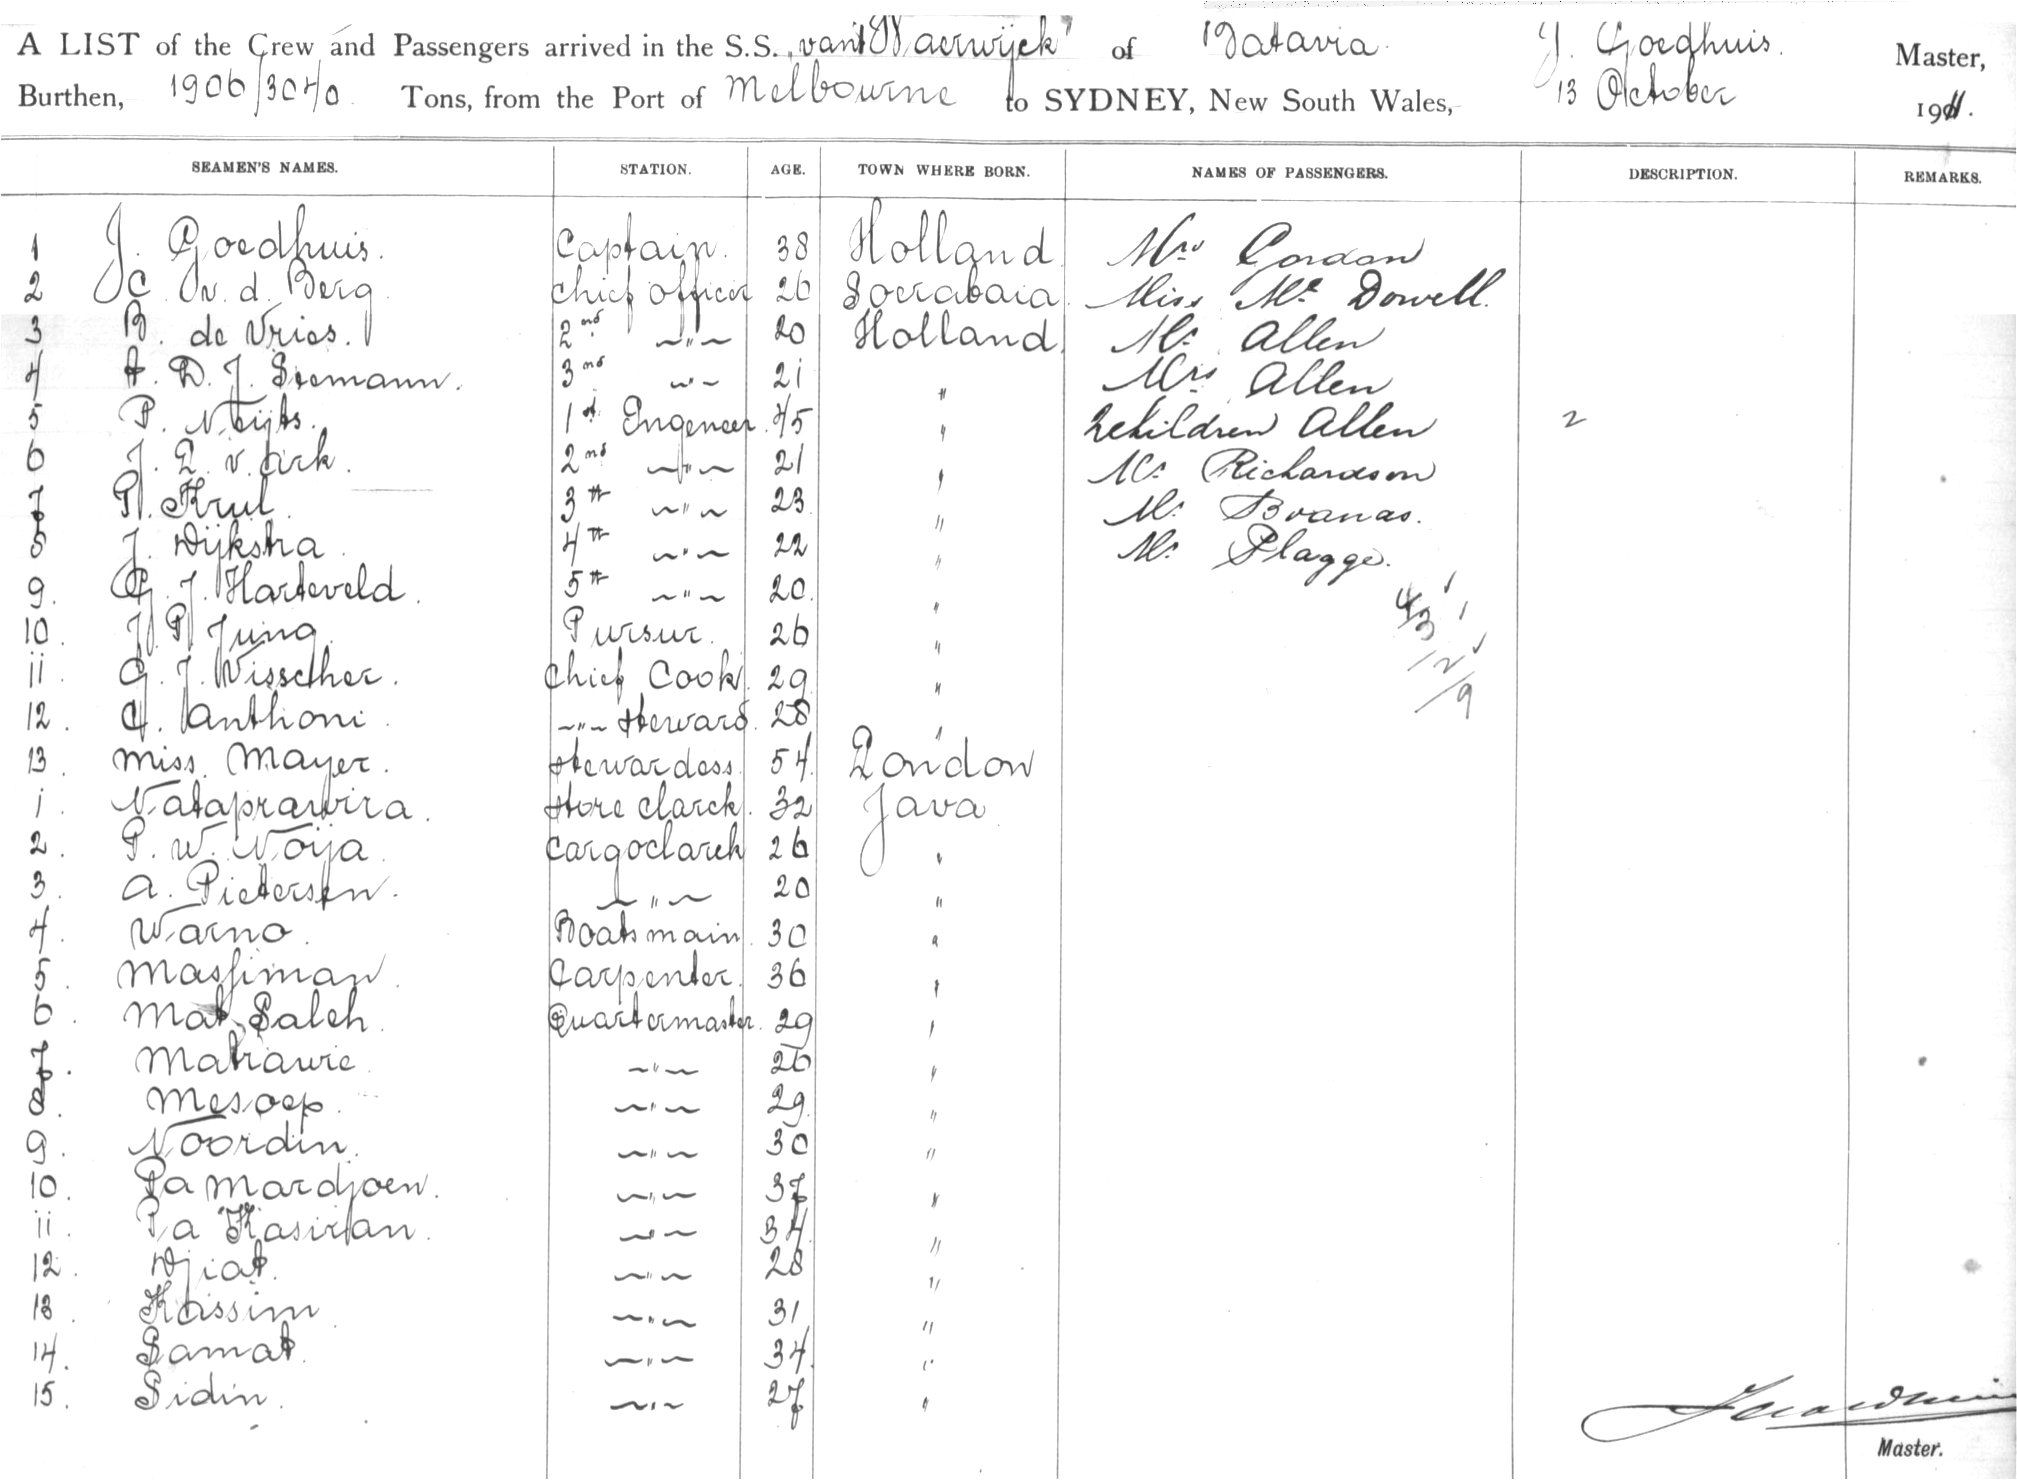 A LIST of the Crew and Passengers arrived in the S.S. „van Waerwijck" of Batavia. J. Goedhuis. Master,
Burthen, 1906/3040 Tons, from the Port of Melbourne to SYDNEY, New South Wales, 13 October 1911.
SEAMEN'S NAMES. STATION. AGE. TOWN WHERE BORN. NAMES OF PASSENGERS. DESCRIPTION. REMARKS.
1 J. Goedhuis. Captain. 38 Holland Mrs Gordon
2 C v. d. Berg chief officer 26 Soerabaia Miss Mc Dowell.
3 B. de Vries. 2nd ~"~ 20 Holland. Mr. Allen
4 A. D. J. Siemann. 3nd ~"~ 21 " Mrs Allen
5 P. Neijts. 1st Engeneer. 45 " 2 children Allen 2
6 J. L. v. Ark. 2nd ~"~ 21 " Mr. Richardson
7 P. Krul. 3th ~"~ 23 "  Mr.
8 J. Dijkstra. 4th ~"~ 22 " Mr. Plagge.
9. G. J. Harteveld. 5th ~"~ 20. "
10. J. P. Jung. Pursur. 26 "
11. G. J. Visscher. Chief Cook. 29 "
12. H. Anthoni. ~"~ Steward. 28 "
13. Miss. Mayer. Stewardess. 54. London
1 Nataprawira. Store clarck. 32 Java
2. P. W. Noija. Cargoclarck 26 "
3. A. Pietersen. ~"~ 20 "
4. Warno. Boatsmain. 30 "
5. Massiman. Carpenter. 36 "
6. Mat Saleh. Quartermaster. 29 "
7. Matrawie. ~"~ 26 "
8. Mesoep. ~"~ 29. "
9. Noordin. ~"~ 30 "
10. Pa Mardjoen. ~"~ 37 "
11. Pa Kasiran. ~"~ 34. "
12. Djiat. ~"~ 28 "
13. Kassim ~"~ 31 "
14. Samat. ~"~ 34. "
15. Sidin. ~"~ 27 "
43
12
9
Master.